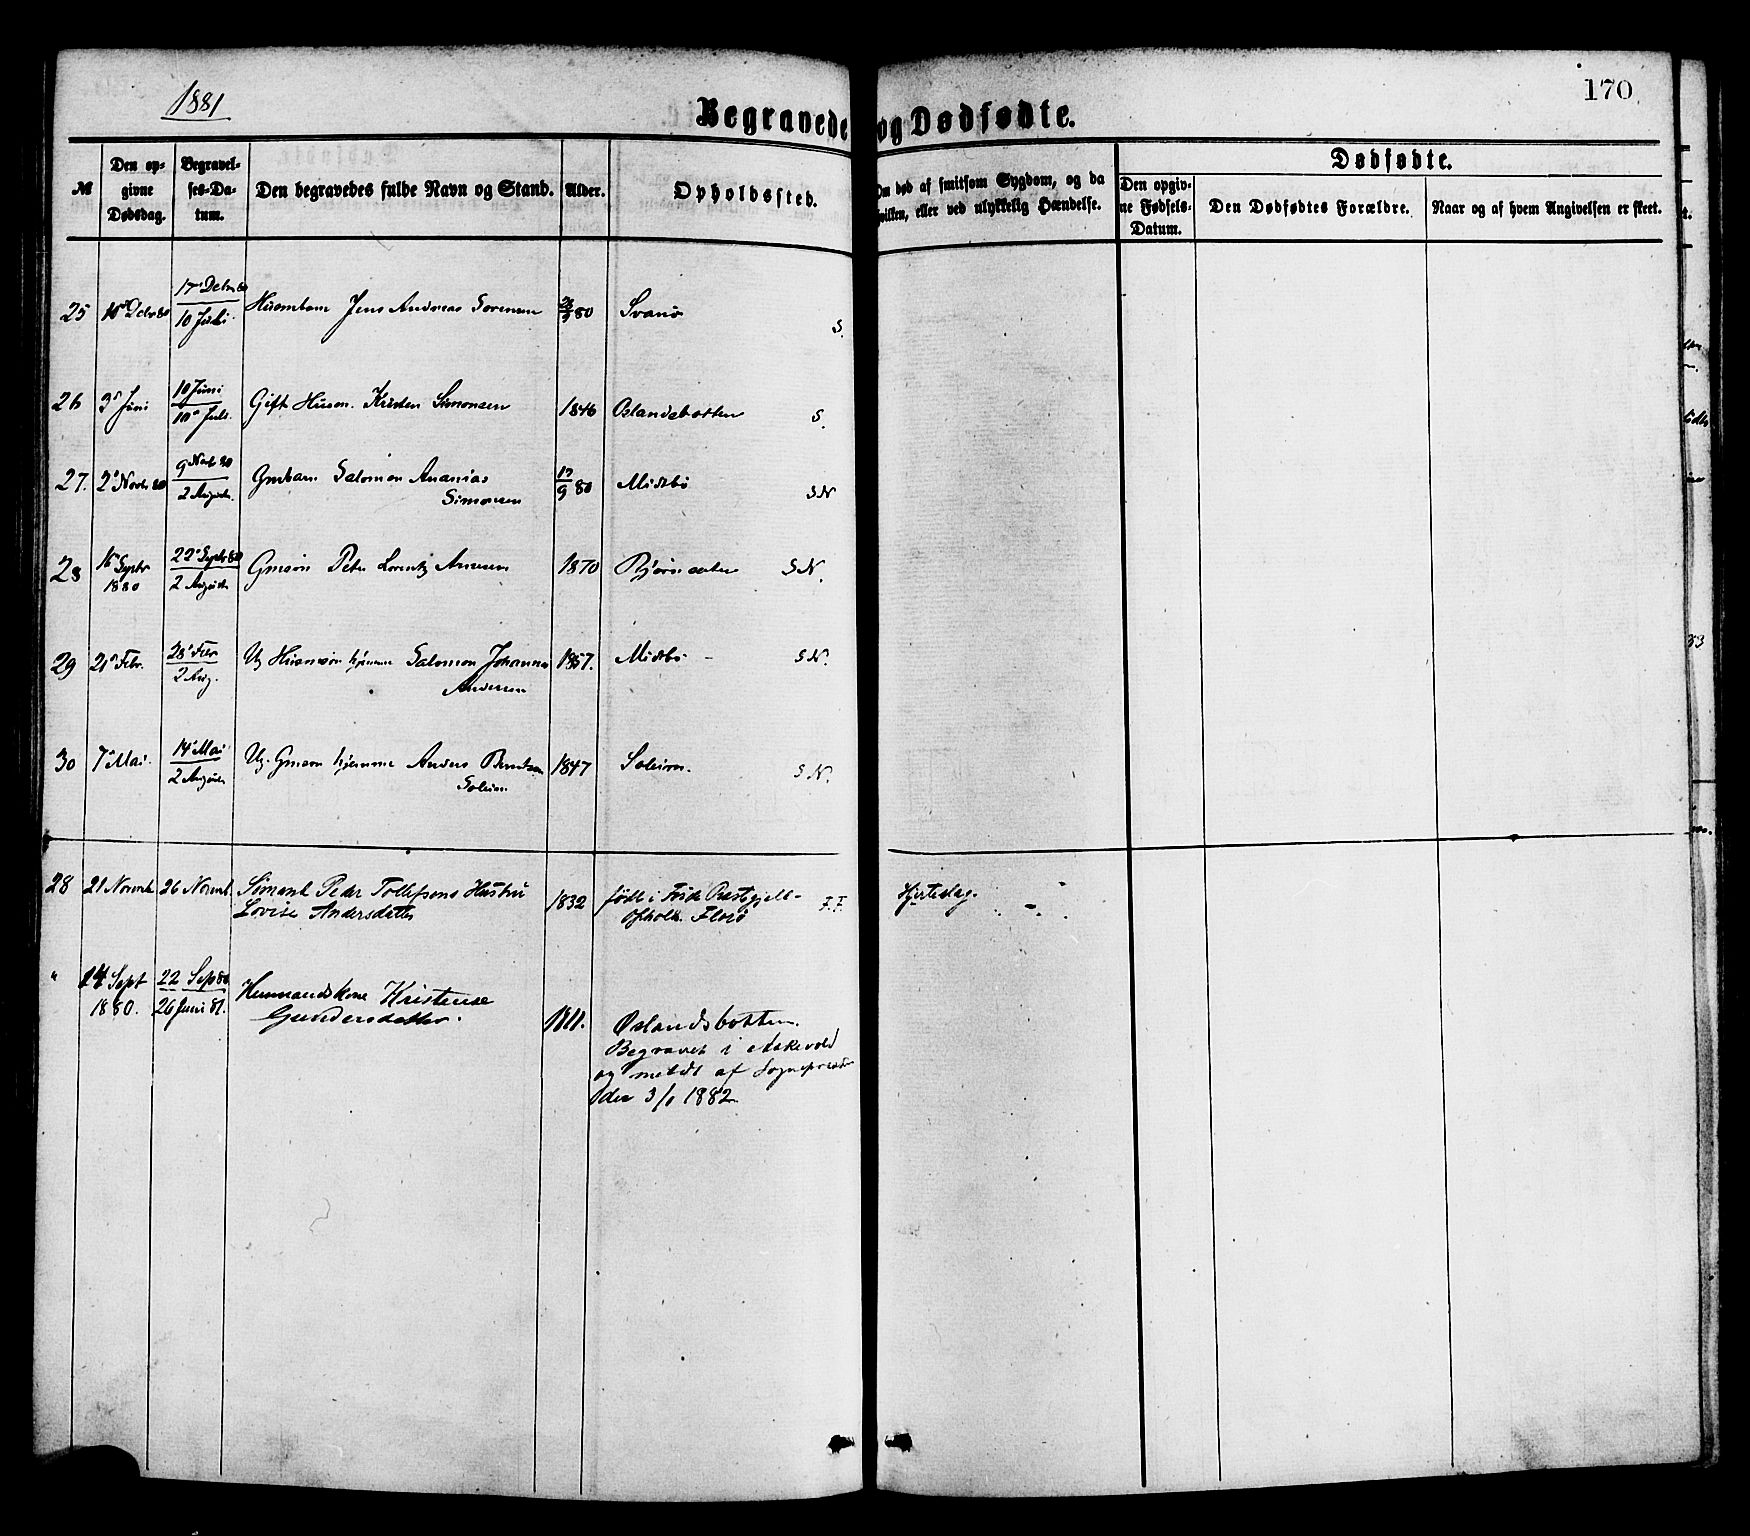 1881
170
Begravede og Dødfødte.
№
Den opgivne Dødsdag.
Begravelses-Datum.
Den begravedes fulde Navn og Stand.
Alder.
Opholdssted.
Om død af smitsom Sygdom, og da hvilken, eller ved ulykkelig Hændelse.
Dødfødte.
Den opgivne Fødsels-Datum.
Den Dødfødtes Forældre.
Naar og af hvem Angivelsen er skeet.
25 10 Decbr 80 17 Decbr 80 / 10 Juli Jens Andreas Sørensen 80 Svanø S.
26 3 Juni 10 Juni / 10 Juli Gift Kristen Simonsen 1846 Oslandsbotten S.
27. 2 Novbr 80 9 Novbr 80 / 2 August Gmbarn Salomon Ananias
Simonsen 80 Midtbø SN
28 16 Septbr
1880 22 Septbr 80 / 2 August Gmsøn Peter Lorentz Ansen 1870 SN.
29 21 Febr. 28 Febr / 2 Aug. Ug. Husmsøn hjemme Salomon Johannes
Andersen 1857. Midtbø SN.
30 7 Mai. 14 Mai / 2 August Ug. Gmsøn hjemme Anders Berntsen
Solheim 1847 Solheim. S N.
28 21 Novemb 26 Novemb. Sømand Peder Tollefsens Hustru
Lovise Andersdatter 1832 født i Førde Præstegjeld
Ophold. Florø F.F. Hjerteslag.
" 14 Sept
1880. 22 Sep 80 / 26 Juni 81. Husmandskone Kristense
Gundersdatter. 1811. Oslandsbotten.
Begravet i Askevold
og meldt af Sognepresten
den 3/1 1882.